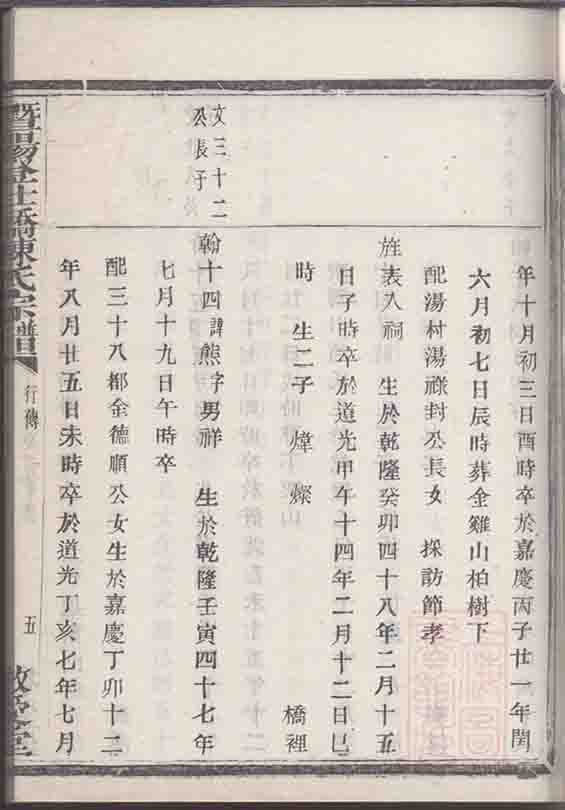 年十月初三日酉時卒於嘉慶丙子廿一年閏
六月初七日辰時葬金雞山柏樹下
配湯村湯祿封公長女 採訪節孝
旌表入祠 生於乾隆癸卯四十八年二月十五
日子時卒於道光甲午十四年二月十二日巳
時 生二子 煒 燦 橋裡
文三十二
公長子
翰十四諱熊字男祥 生於乾隆壬寅四十七年
七月十九日午時卒
配三十八都金德順公女生於嘉慶丁卯十二
年八月廿五日未時卒於道光丁亥七年七月
暨陽登仕橋陳氏宗譜
行傳
五
敦堂